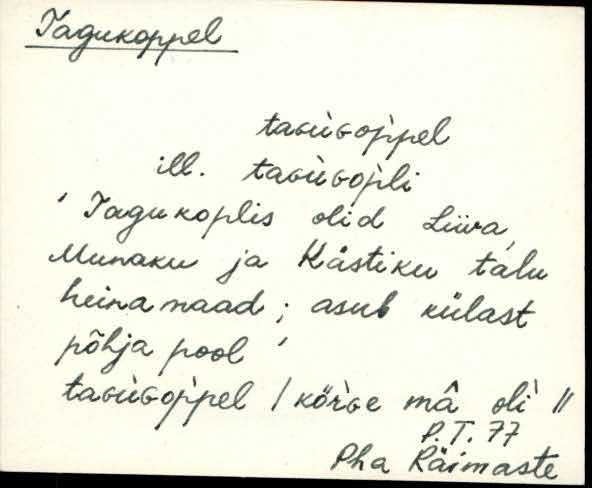 Tagukoppel
taɢùɢop̀pel
ill. taɢùɢop̀li
' Tagukoplis olid Liiva,
Munaku ja Kästiku talu
heinamaad ; asub külast
põhja pool '
taɢùɢop̀pel / kõr̀ɢe mâ olì //
P.T. 77
Pha Räimaste